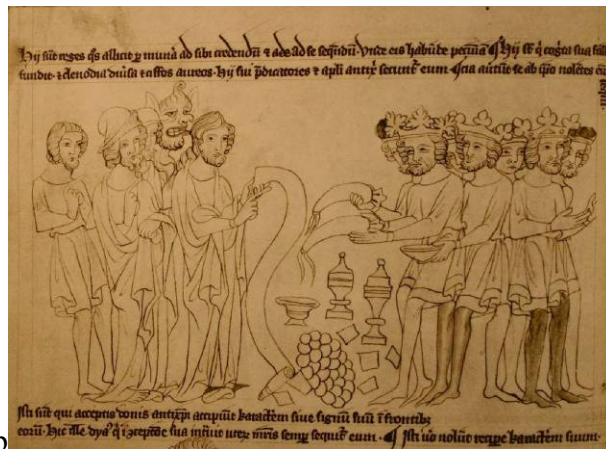 Hij sūt reges qs allicit p munā ad sibi credendū ⁊ ad se seqndū. eis pecuniā ¶ Hij sūt q sua
fundit. ⁊ clenodia diuisa ⁊ ciffos aureos. Hij sui pdicatores ⁊ apli antixi secunt eum. se ab ipo nolētes
Isti sūt qui acceptis donis antixpi accipiūt karacterem siue signū suū ī frontibz
eorū. Hic ille dya q ī ɔceptōe sua utez mris semp sequit eum. ¶ Isti uo nolūt recipe karacterem suum.